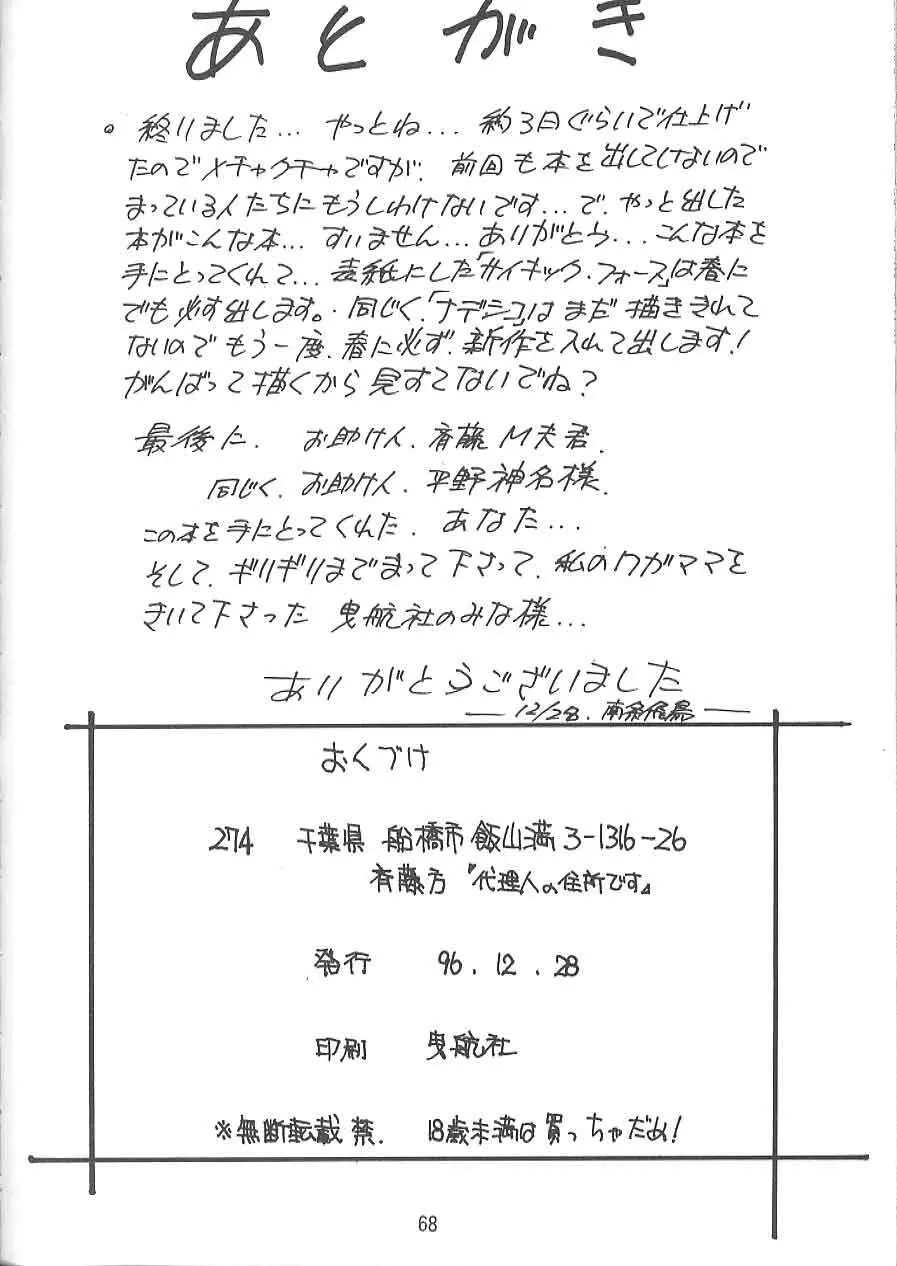 あとがき
。終りました… やっとね… 約3日ぐらいで仕上げ
たのでメチャクチャですが、前回も本を出してしないので
まっている人たちにもうしわけないです…で、やっと出した
本がこんな本… すいません…ありがとう…こんな本を
手にとってくれて… 表紙にした「サイキック・フォース」は春に
でも必ず出します。同じく、「ナデシコ」はまだ描ききれて
ないのでもう一度、春に必ず、新作を入れて出します!
がんばって描くから見すてないでね?
最後に、お助け人、斉藤M夫君、
同じく、お助け人、平野神名様、
この本を手にとってくれた、あなた…
そして、ギリギリまでまって下さって、私のワガママを
きいて下さった 曳航社のみな様…
ありがとうございました
― 12/28. 南条飛鳥 ―
おくづけ
274 千葉県 船橋市 飯山満3-1316-26
斉藤方『代理人の住所です』
発行 96.12.28
印刷 曳航社
※無断転載禁. 18歳未満は買っちゃだめ!
68